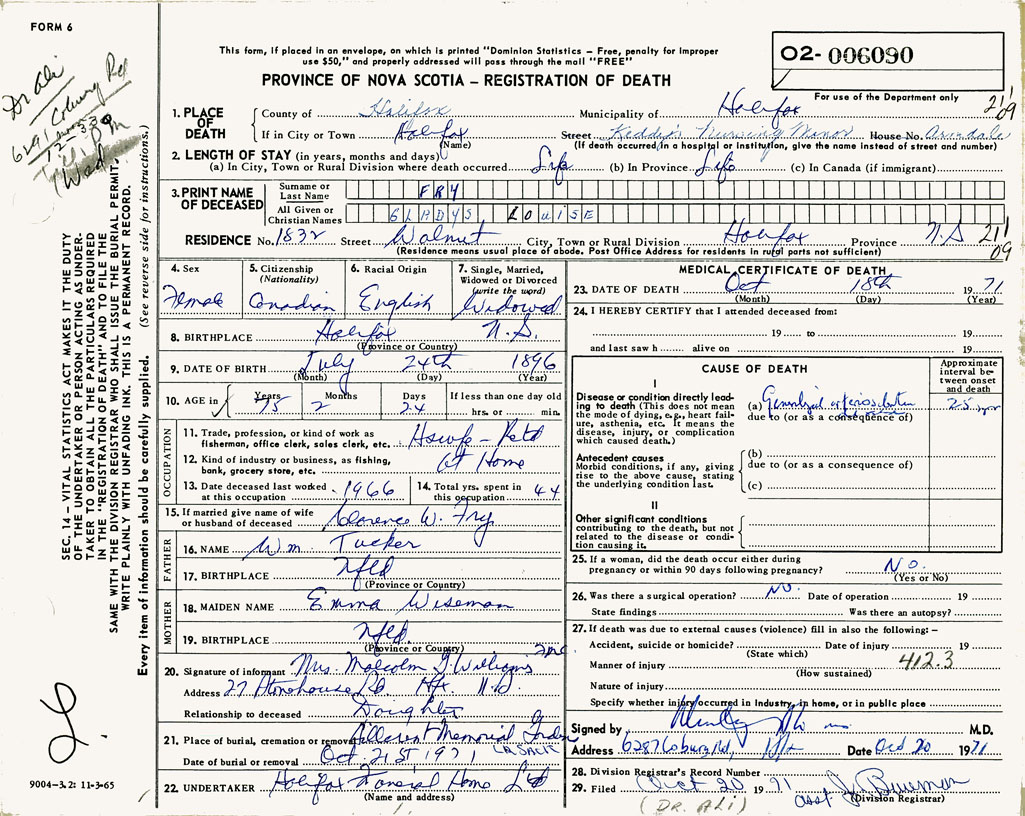 FORM 6
This form, if placed in an envelope, on which is printed "Dominion Statistics – Free, penalty for improper
use $50," and properly addressed will pass through the mail "FREE"
PROVINCE OF NOVA SCOTIA – REGISTRATION OF DEATH
02- 006090
For use of the Department only
Dr Ali
6291 Coburg Rd
SEC. 14 – VITAL STATISTICS ACT MAKES IT THE DUTY
OF THE UNDERTAKER OR PERSON ACTING AS UNDER-
TAKER TO OBTAIN ALL THE PARTICULARS REQUIRED
IN THE "REGISTRATION OF DEATH" AND TO FILE THE
SAME WITH THE DIVISION REGISTRAR WHO SHALL ISSUE THE BURIAL PERMIT.
WRITE PLAINLY WITH UNFADING INK. THIS IS A PERMANENT RECORD.
Every item of information should be carefully supplied. (See reverse side for instructions.)
1. PLACE OF DEATH
County of Halifax Municipality of Halifax 21/09
If in City or Town Halifax Street Nursing Manor House No.
(Name) (If death occurred in a hospital or institution, give the name instead of street and number)
2. LENGTH OF STAY (in years, months and days)
(a) In City, Town or Rural Division where death occurred Life (b) In Province Life (c) In Canada (if immigrant)
3. PRINT NAME OF DECEASED
Surname or Last Name FRY
All Given or Christian Names GLADYS LOUISE
RESIDENCE No. 1832 Street Walnut City, Town or Rural Division Halifax Province N.S 21/09
(Residence means usual place of abode. Post Office Address for residents in rural parts not sufficient)
4. Sex Female
5. Citizenship (Nationality) Canadian
6. Racial Origin English
7. Single, Married, Widowed or Divorced (write the word) Widowed
8. BIRTHPLACE Halifax N.S.
(Province or Country)
9. DATE OF BIRTH July 24th 1896
(Month) (Day) (Year)
10. AGE in Years 75 Months 2 Days 24 If less than one day old hrs. or min.
OCCUPATION
11. Trade, profession, or kind of work as fisherman, office clerk, sales clerk, etc. Hswfe – Retd
12. Kind of industry or business, as fishing, bank, grocery store, etc. At Home
13. Date deceased last worked at this occupation 1966
14. Total yrs. spent in this occupation 44
15. If married give name of wife or husband of deceased Clarence W. Fry
FATHER
16. NAME Wm. Tucker
17. BIRTHPLACE Nfld
(Province or Country)
MOTHER
18. MAIDEN NAME Emma Wiseman
19. BIRTHPLACE Nfld.
(Province or Country)
20. Signature of informant Mrs. Malcolm G. Williams
Address 27 Stonehouse Rd. Hfx. N.S.
Relationship to deceased Daughter
21. Place of burial, cremation or removal Memorial Grdns
Date of burial or removal Oct. 21st 1971
22. UNDERTAKER Halifax Funeral Home Ltd
(Name and address)
MEDICAL CERTIFICATE OF DEATH
23. DATE OF DEATH Oct 18th 1971
(Month) (Day) (Year)
24. I HEREBY CERTIFY that I attended deceased from:
19 to 19
and last saw h alive on 19
CAUSE OF DEATH
Approximate interval between onset and death
I
Disease or condition directly lead-
ing to death (This does not mean
the mode of dying, e.g., heart fail-
ure, asthenia, etc. It means the
disease, injury, or complication
which caused death.)
(a) Generalized 25 yrs
due to (or as a consequence of)
Antecedent causes
Morbid conditions, if any, giving
rise to the above cause, stating
the underlying condition last.
(b)
due to (or as a consequence of)
(c)
II
Other significant conditions
contributing to the death, but not
related to the disease or condi-
tion causing it.
25. If a woman, did the death occur either during
pregnancy or within 90 days following pregnancy? No.
(Yes or No)
26. Was there a surgical operation? No. Date of operation 19
State findings Was there an autopsy?
27. If death was due to external causes (violence) fill in also the following: –
Accident, suicide or homicide? Date of injury 19
(State which)
Manner of injury 412.3
(How sustained)
Nature of injury
Specify whether injury occurred in industry, in home, or in public place
Signed by M.D.
Address 6287 Coburg Rd, Hfx Date Oct 20 1971
28. Division Registrar's Record Number
29. Filed Oct 20 1971 asst.
(Division Registrar)
(DR. ALI)
9004-3.2: 11-3-65